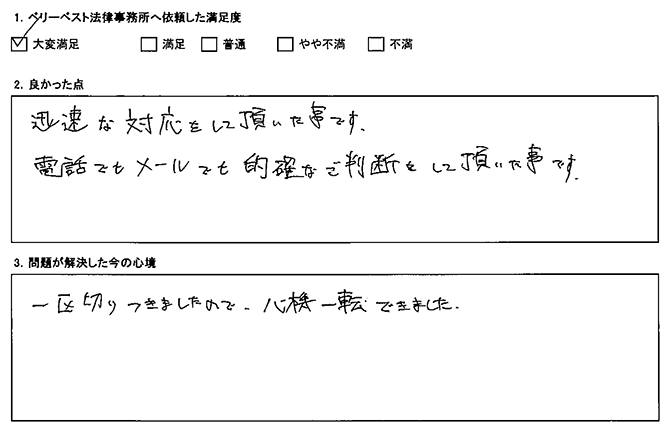 1. ベリーベスト法律事務所へ依頼した満足度
☑ 大変満足 □ 満足 □ 普通 □ やや不満 □ 不満
2. 良かった点
迅速な対応をして頂いた事です。
電話でもメールでも的確なご判断をして頂いた事です。
3. 問題が解決した今の心境
一区切りつきましたので、心機一転できました。